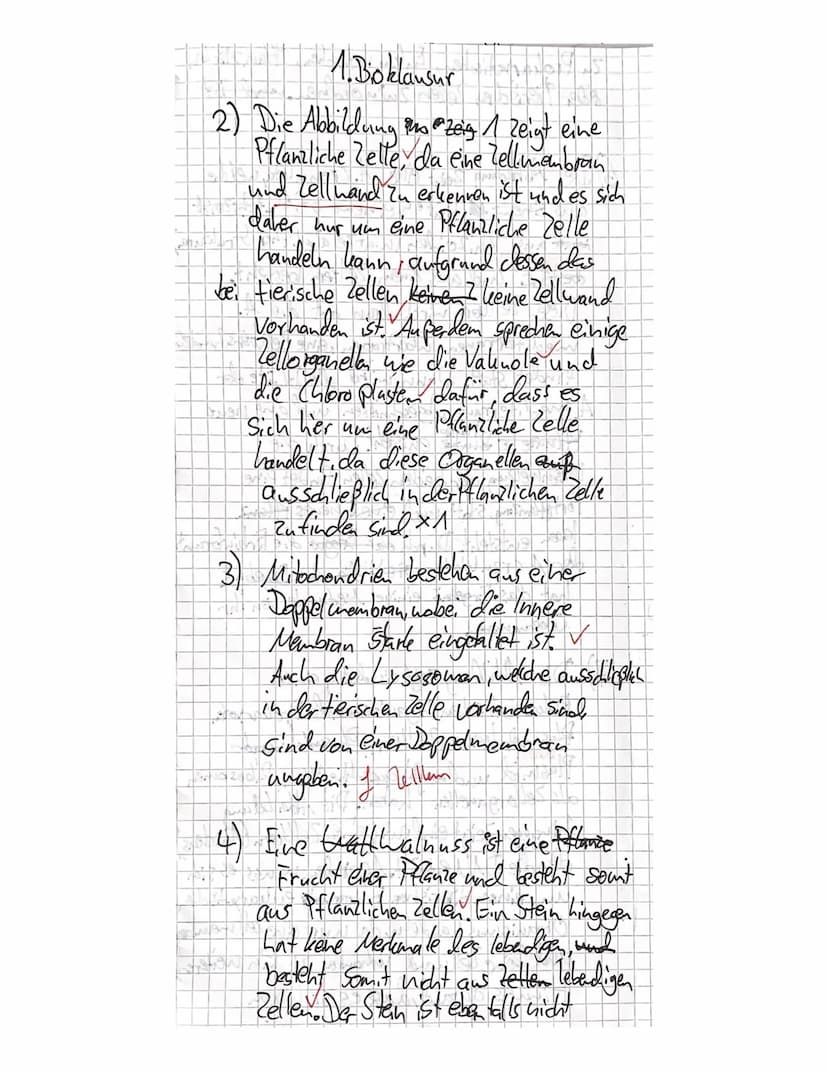 1. Bioklausur
2) Die Abbildung zeig 1 zeigt eine
Pflanzliche Zelle, da eine Zellmembran
und Zellwand zu erkennen ist und es sich
daher nur um eine Pflanzliche Zelle
handeln kann, aufgrund dessen das
bei tierische Zellen keine Zellwand
vorhanden ist. Außerdem sprechen einige
Zellorganellen wie die Vakuole und
die Chloroplasten dafür, dass es
sich hier um eine Pflanzliche Zelle
handelt, da diese Organellen auß
ausschließlich in der Pflanzlichen Zelle
zu finden sind. x1
3) Mitochondrien bestehen aus einer
Doppelmembran, wobei die Innere
Membran Stark eingefaltet ist. ✓
Auch die Lysosomen, welche ausschließlich
in der tierischen Zelle vorhanden sind,
sind von einer Doppelmembran
umgeben. f
4) Eine Walnuss ist eine Pflanze
Frucht einer Pflanze und besteht somit
aus Pflanzlichen Zellen. Ein Stein hingegen
hat keine Merkmale des lebendigen, und
besteht Somit nicht aus Zellen lebendigen
Zellen. Der Stein ist ebenfalls nicht